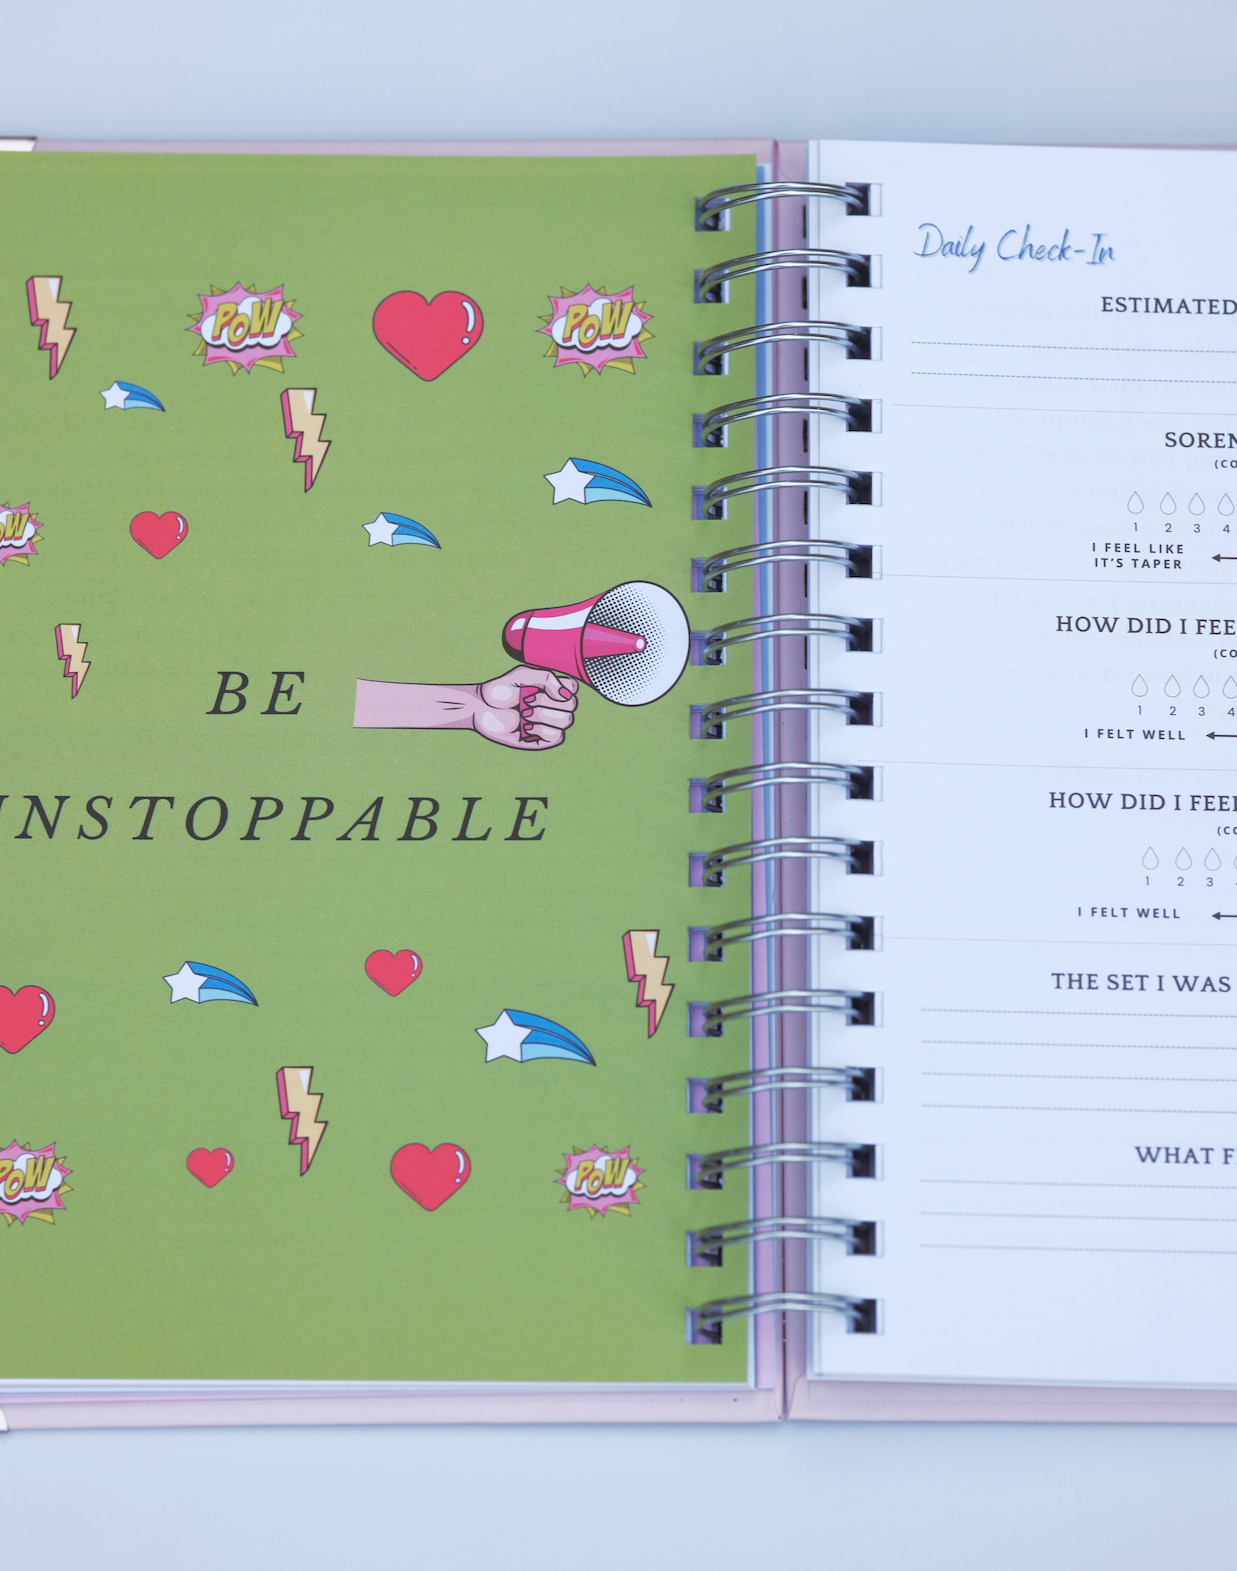 POW
POW
POW
BE
UNSTOPPABLE
POW
POW
Daily Check-In
ESTIMATED
SOREN
(CO
1 2 3 4
I FEEL LIKE
IT'S TAPER
HOW DID I FEE
(CO
1 2 3 4
I FELT WELL
HOW DID I FEEL
(CO
1 2 3
I FELT WELL
THE SET I WAS
WHAT F